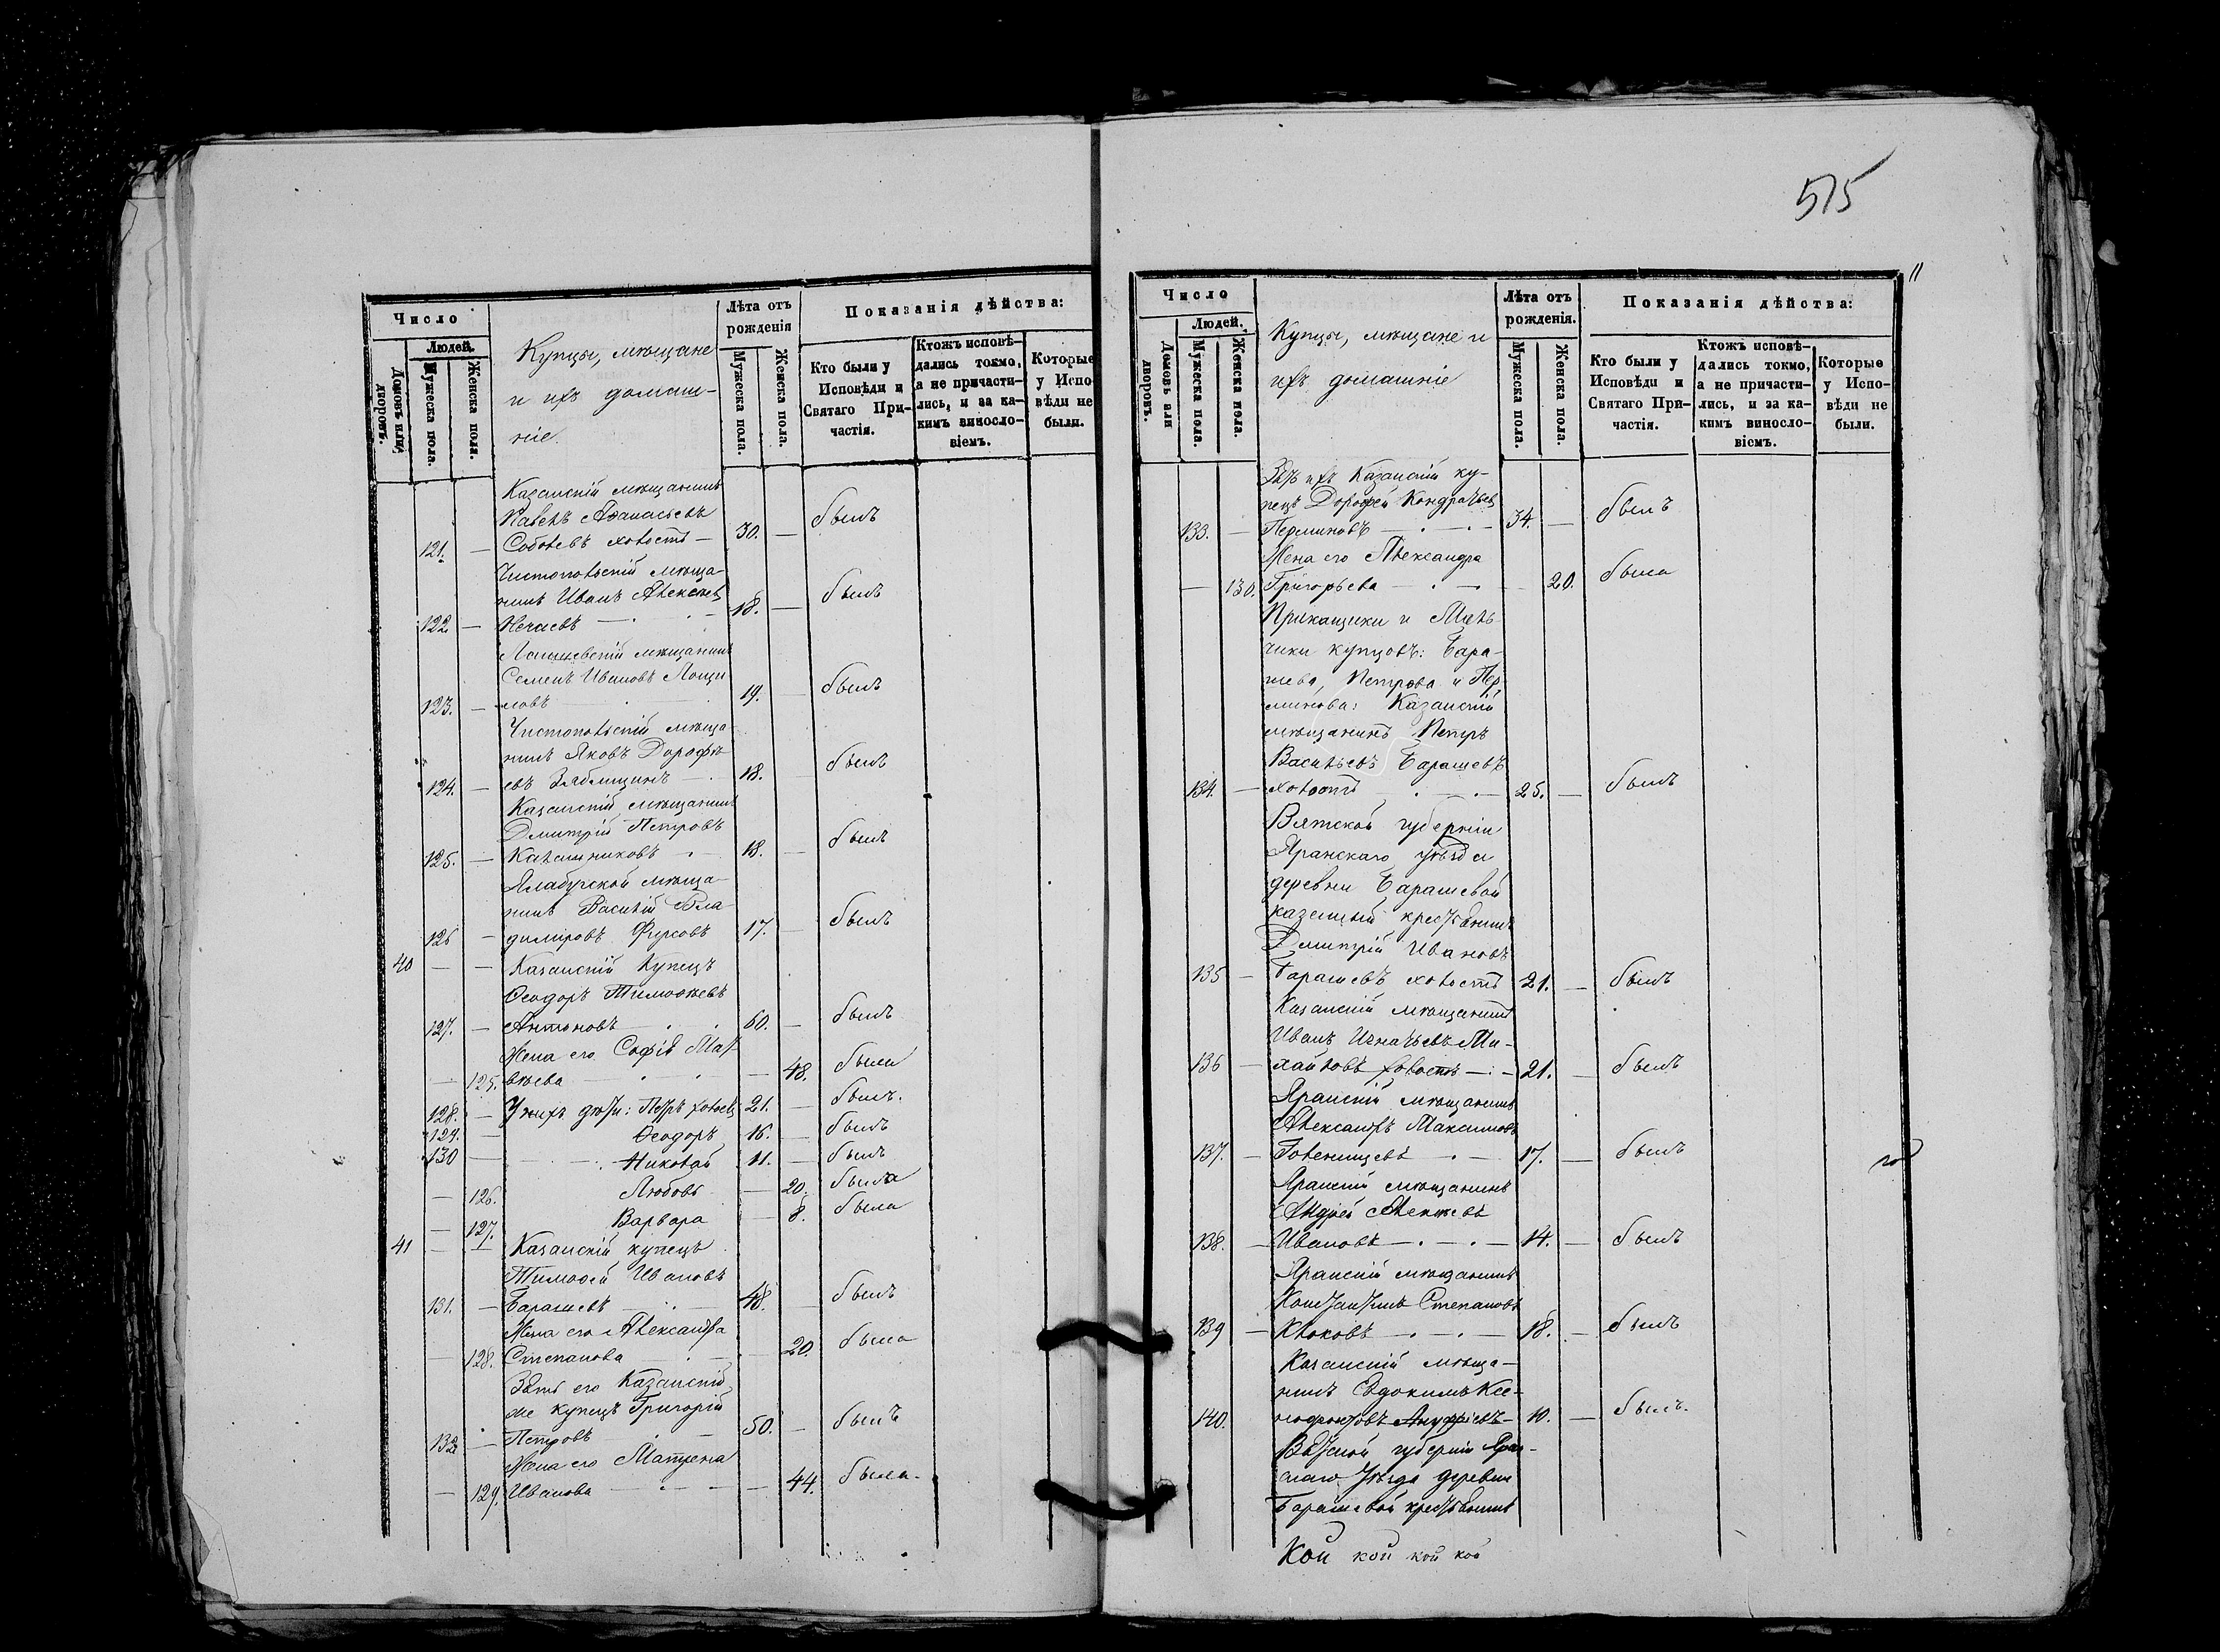 Число
Людей.
Домовъ или дворовъ.
Мужеска пола.
Женска пола.
Купцы, мѣщане
и ихъ домаш-
ніе.
Лѣта отъ
рожденія
Мужеска пола.
Женска пола.
Показанія дѣйства:
Кто были у
Исповѣди и
Святаго При-
частія.
Ктожъ исповѣ-
дались токмо,
а не причасти-
лись, и за ка-
кимъ винosло-
віемъ.
Которые
у Испо-
вѣди не
были.
Казанскій мѣщанинъ
Павелъ Аѳанасьевъ
121. — Соболевъ холостъ — 30. — былъ
Чистопольскій мѣща-
нинъ Иванъ Алексѣев
122 — Нечаевъ — 18. — былъ
Лаишевскій мѣщанинъ
Семенъ Ивановъ Лощи
123. — ловъ 19. — былъ
Чистопольскій мѣща
нинъ Яковъ Дорофѣ
124. — евъ Зяблицинъ — 18. — былъ
Казанскій мѣщанинъ
Дмитрій Петровъ
125. — Калашниковъ 18. — былъ
Елабужской мѣща-
нинъ Василій Вла-
126 — диміровъ Фирсовъ 17. — былъ
40 — — Казанскій Купецъ
Ѳеодоръ Тимоѳеевъ
127. — Антоновъ — 60. — былъ
Жена его Софія Мат
— 125. вѣева — — 48. была
128. — У нихъ дѣти: Петръ холост 21. — былъ.
129. — Ѳеодоръ 16. — былъ
130 — Николай 11. — былъ
— 126. Любовь — 20. была
— 127. Варвара — 8. была
41 — — Казанскій купецъ
Тимоѳей Ивановъ
131. — Барашевъ — 48. — былъ
Жена его Александра
— 128. Степанова — 20. была
Зять его Казанскій
же купецъ Григорій
132 — Петровъ — 50. — былъ
Жена его Матрена
— 129. Иванова — — 44. была.
515
11
Число
Людей.
Домовъ или дворовъ.
Мужеска пола.
Женска пола.
Купцы, мѣщане и
ихъ домашніе
Лѣта отъ
рожденія.
Мужеска пола.
Женска пола.
Показанія дѣйства:
Кто были у
Исповѣди и
Святаго При-
частія.
Ктожъ исповѣ-
дались токмо,
а не причасти-
лись, и за ка-
кимъ виносло-
віемъ.
Которые
у Испо-
вѣди не
были.
Зять ихъ Казанскій ку-
пецъ Дорофей Кондратьев
133. — Перминовъ — 34. — былъ
Жена его Александра
— 130. Григорьева — — 20. была
Прикащики и Маль-
чики купцовъ: Бара-
шева, Петрова и Пер-
минова: Казанскій
мѣщанинъ Петръ
Васильевъ Барашевъ
134. — холостъ — 25. — былъ
Вятской губерніи
Яранскаго уѣзда
деревни Барашевой
казенный крестьянинъ
Дмитрій Ивановъ
135 — Барашевъ холостъ 21. — былъ
Казанскій мѣщанинъ
Иванъ Игнатьевъ Ми-
136 — хайловъ холостъ — 21. — былъ
Яранскій мѣщанинъ
Александръ Максимовъ
137. — Голенищевъ — 17. — былъ
Яранскій мѣщанинъ
Андрей Алексѣевъ
138. — Ивановъ — 14. — былъ
Яранскій мѣщанинъ
Константинъ Степановъ
139 — Клоковъ — 18. — былъ
Казанскій мѣща-
нинъ Евдокимъ Ксе-
140. нофонтовъ Ануфріевъ — 10. — былъ.
Вятской губерніи Яран-
скаго Уѣзда деревни
Барашевой крестьянинъ
Кой кой кой кой